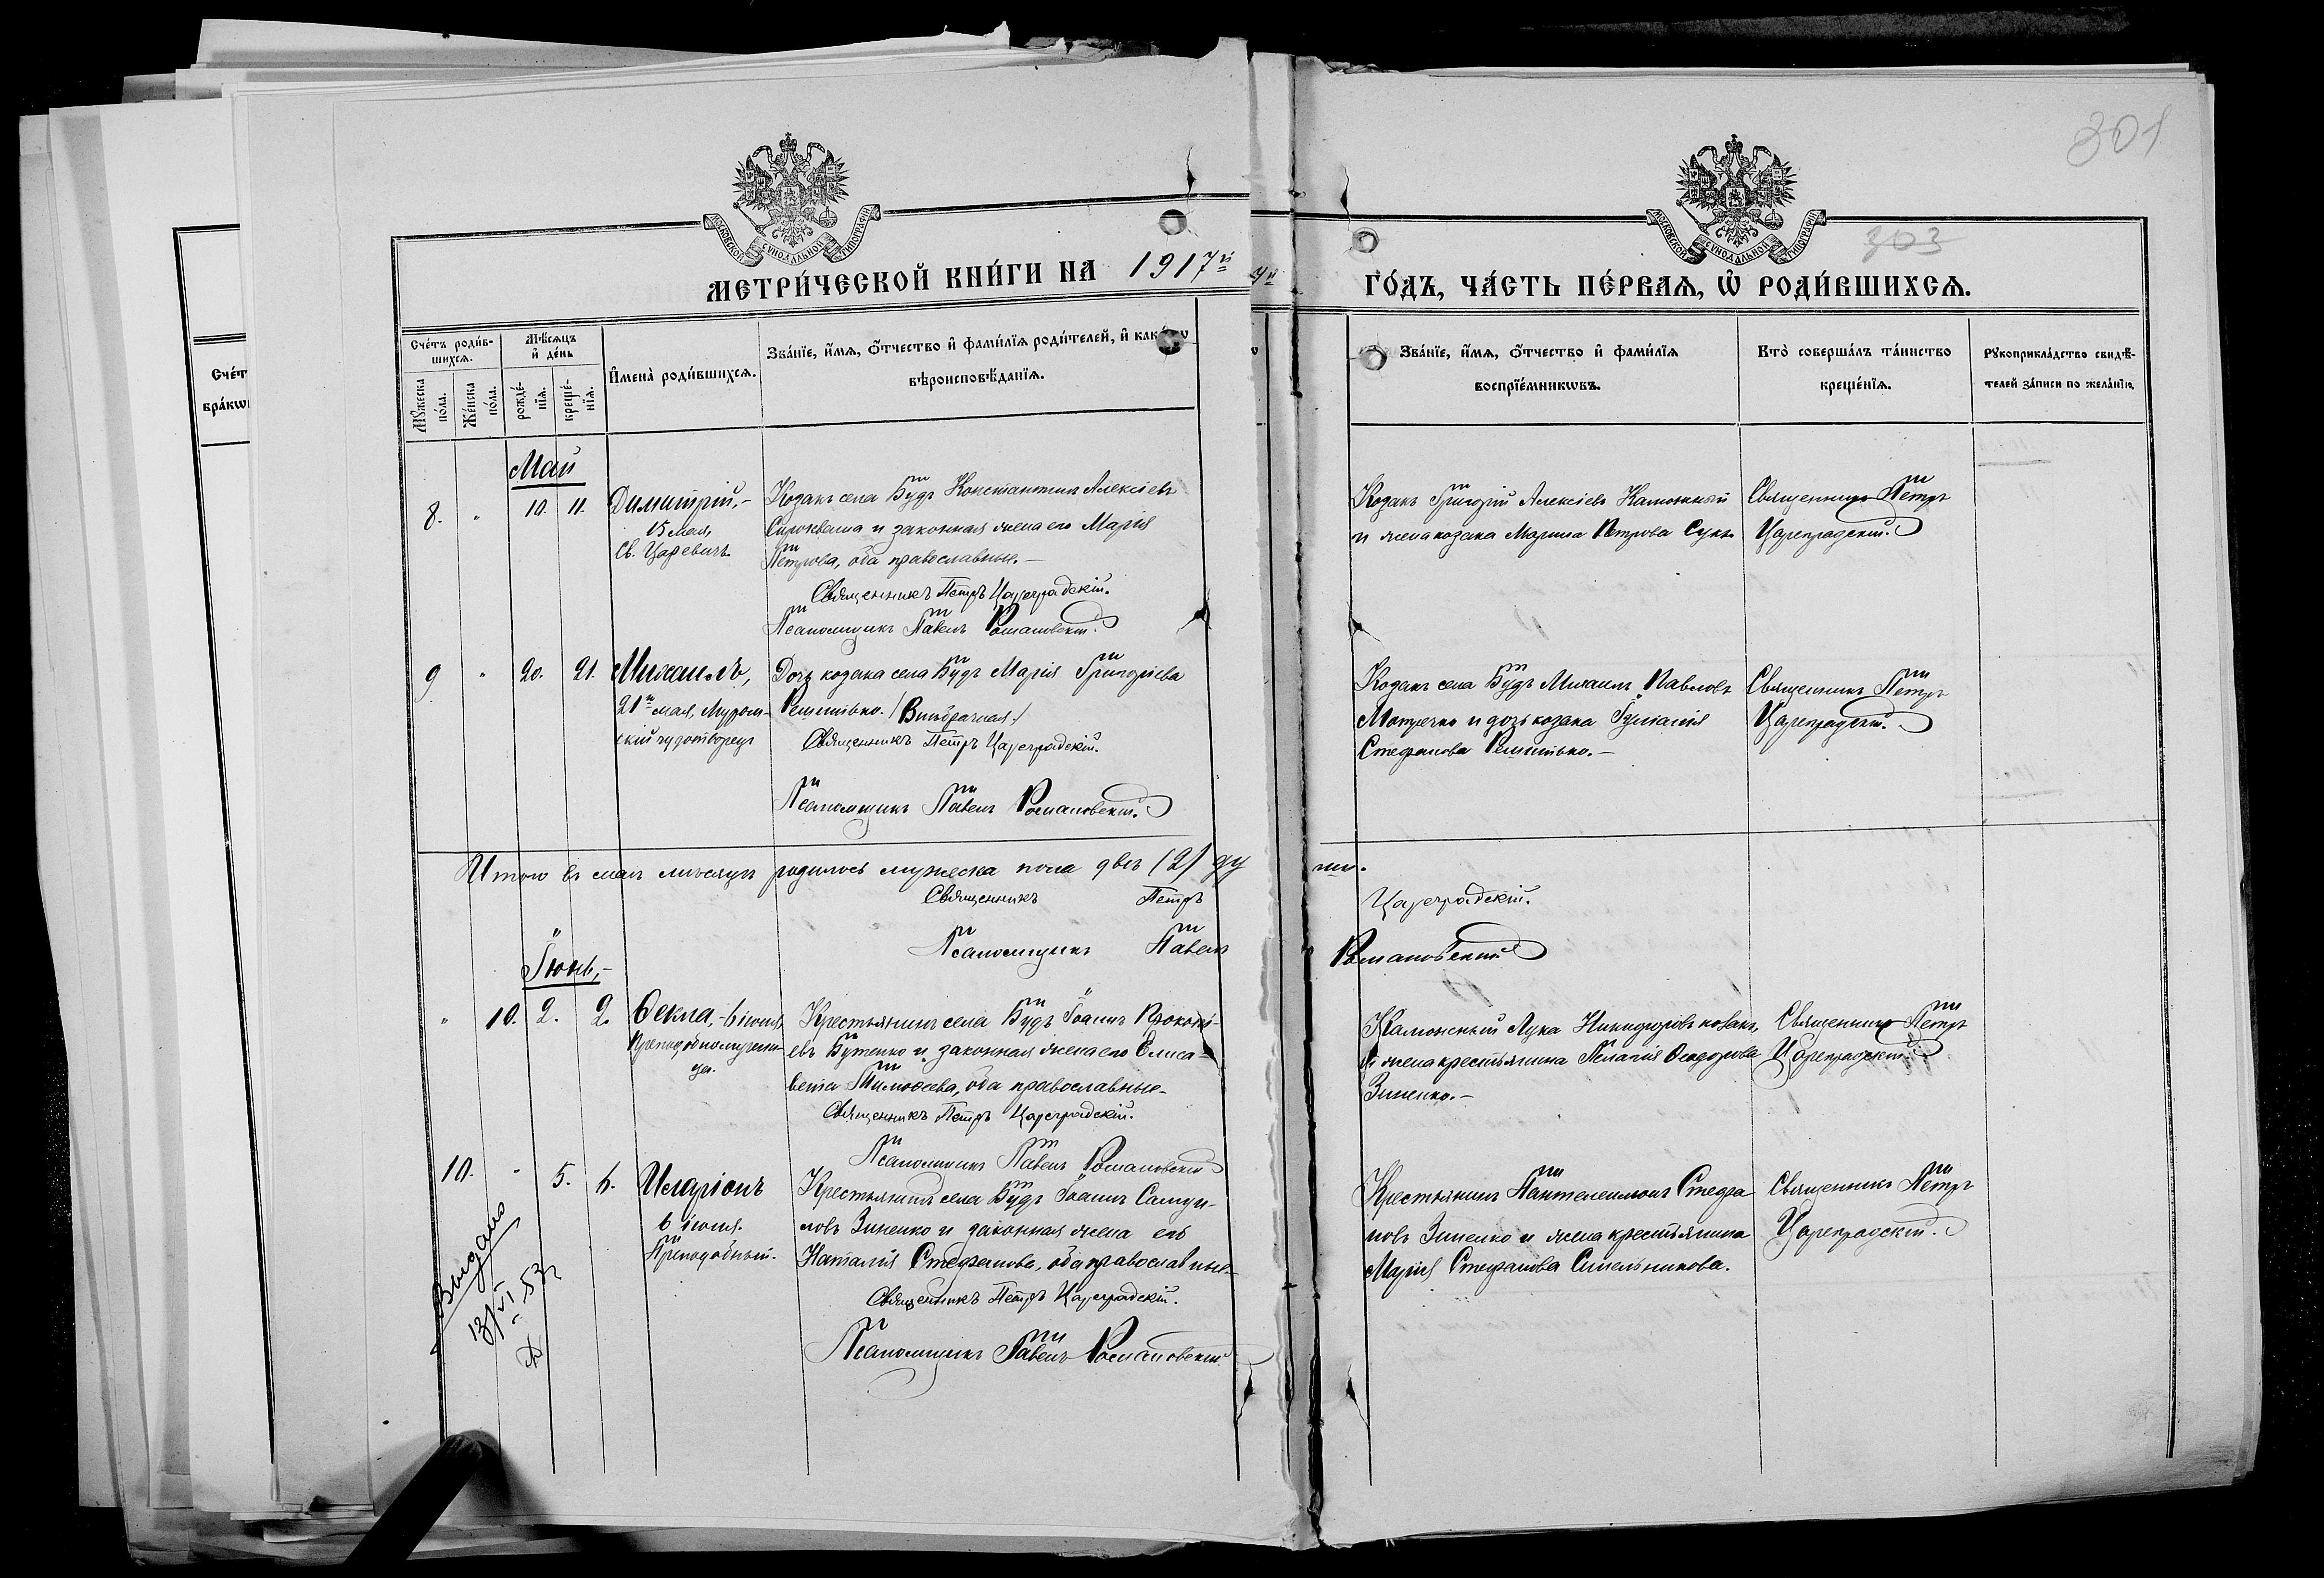 301
303
МОСКОВСКОЙ СѴНОДАЛЬНОЙ ТИПОГРАФІИ
МОСКОВСКОЙ СѴНОДАЛЬНОЙ ТИПОГРАФІИ
МЕТРИ́ЧЕСКОЙ КНИ́ГИ НА 1917й
ГО́ДЪ, ЧА́СТЬ ПЕ́РВАѦ, Ѽ РОДИ́ВШИХСѦ.
Сче́тъ роди́в-
шихсѧ.
Мꙋжеска по́ла.
Же́нска по́ла.
Мѣ́сѧцъ
и҆ де́нь
рожде́-
нїѧ.
креще́-
нїѧ.
И҆мена̀ роди́вшихсѧ.
Зва́нїе, и҆́мѧ, ѻ҆́тчество и҆ фами́лїѧ роди́телей, и҆
вѣроисповѣ́данїѧ.
Зва́нїе, и҆́мѧ, ѻ҆́тчество и҆ фами́лїѧ
воспрїе́мникѡвъ.
Кто̀ соверша́лъ та́инство
креще́нїѧ.
Рꙋкоприкла́дство свидѣ́-
телей за́писи по жела́нїю.
Сче́т
бра́кѡ
Май
8. " 10. 11. Димитрій,-
15 мая,
Св. Царевичъ.
Козакъ села Будъ Константинъ Алексіевъ
и законная жена его Марія
Петрова, оба православные.-
Священникъ Петръ Цареградскій.
Псаломщикъ Павелъ Романовскій.
Козакъ Григорій Алексіевъ
и жена козака Марина Петрова
Священникъ Петръ
Цареградскій.
9 " 20. 21. Михаилъ,
21го мая, Муром-
скій чудотворецъ
Дочь козака села Будъ Марія Григоріева
Решитько. /Внѣбрачная./
Священникъ Петръ Цареградскій.
Псаломщикъ Павелъ Романовскій.
Козакъ села Будъ Михаилъ Павловъ
и дочь козака
Стефанова Решитько.-
Священникъ Петръ
Цареградскій.
Итого въ маѣ мѣсяцѣ родилось мужеска пола двѣ /2/ ду
ши.
Священникъ Петръ
Цареградскій.
Псаломщикъ Павелъ
Романовскій
Іюнь,-
" 10. 2. 2. Ѳекла,- 6 іюня,
Преподобномучени-
ца.
Крестьянинъ села Будъ Іоаннъ Прокопі-
евъ Бутенко и законная жена его Елиса-
вета Тимоѳеева, оба православные-
Священникъ Петръ Цареградскій.
Псаломщикъ Павелъ Романовскій
Лука Никифоровъ козакъ,
и жена крестьянина Пелагія Ѳеодорова
Зиненко.-
Священникъ Петръ
Цареградскій.
10. " 5. 6. Иларіонъ
6 іюня.
Преподобный.
Крестьянинъ села Будъ Іоаннъ Самуи-
ловъ Зиненко и законная жена его
Наталія Стефанова, оба православные-
Священникъ Петръ Цареградскій.
Псаломщикъ Павелъ Романовскій.
Крестьянинъ Пантелеимонъ Стефа
новъ Зиненко и жена крестьянина
Марія Стефанова Сительникова.
Священникъ Петръ
Цареградскій.
Выдано
13/VI-53г